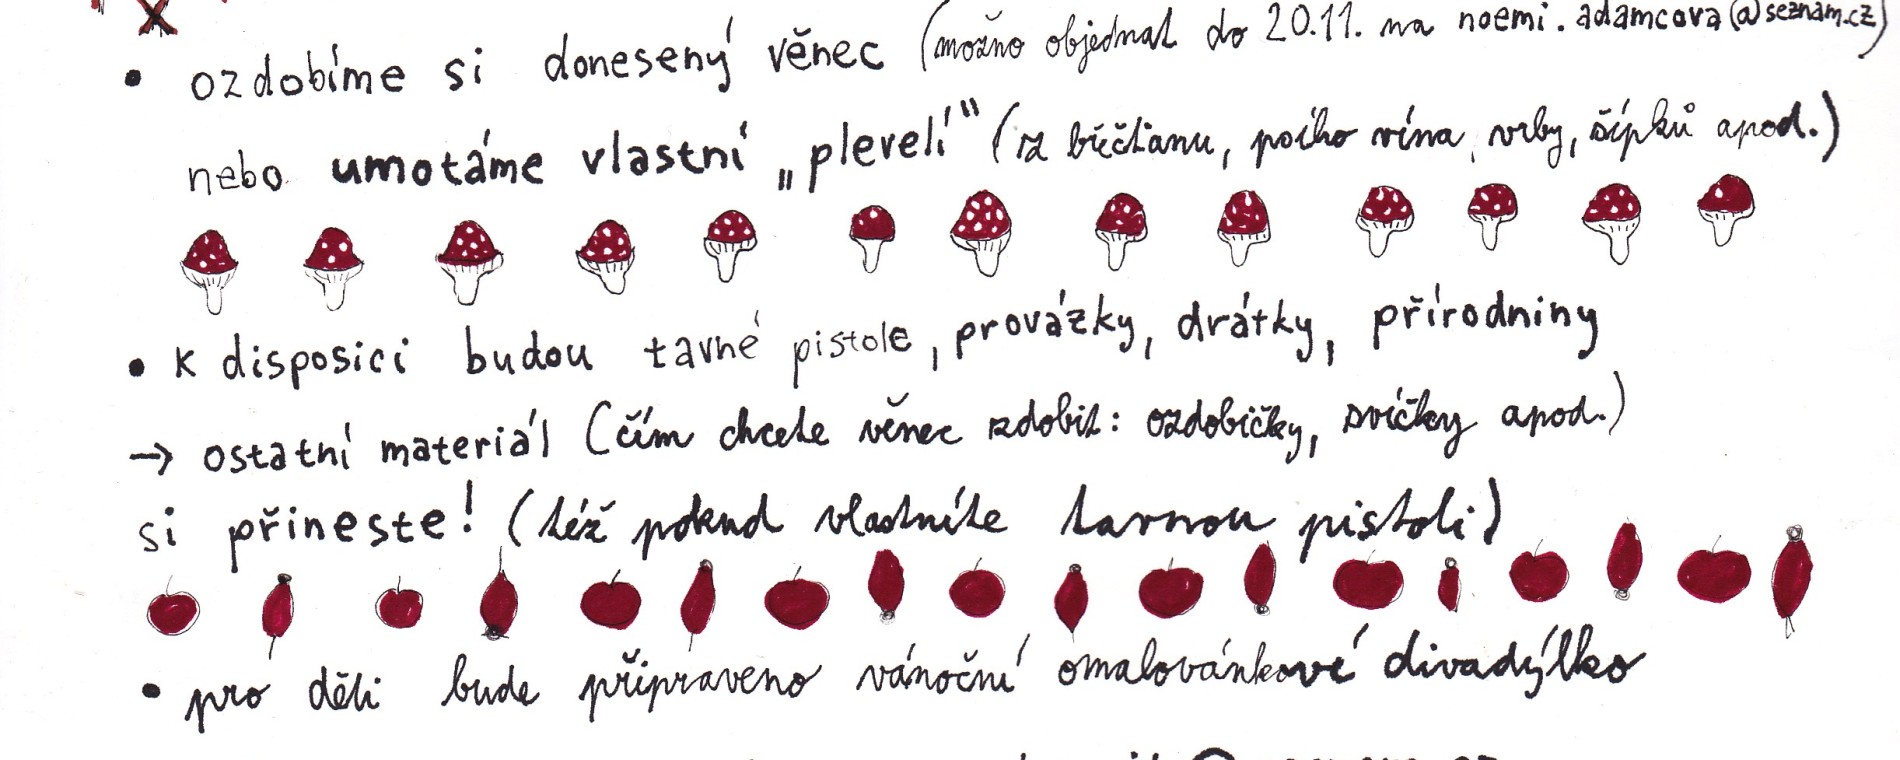 • ozdobíme si donesený věnec (možno objednat do 20.11. na noemi.adamcova@seznam.cz)
nebo umotáme vlastní „plevelí“ (z břečťanu, psího vína, vrby, šípků apod.)
• k disposici budou tavné pistole, provázky, drátky, přírodniny
→ ostatní materiál (čím chcete věnec zdobit: ozdobičky, svíčky apod.)
si přineste! (též pokud vlastníte tavnou pistoli)
• pro děti bude připraveno vánoční omalovánkové divadýlko